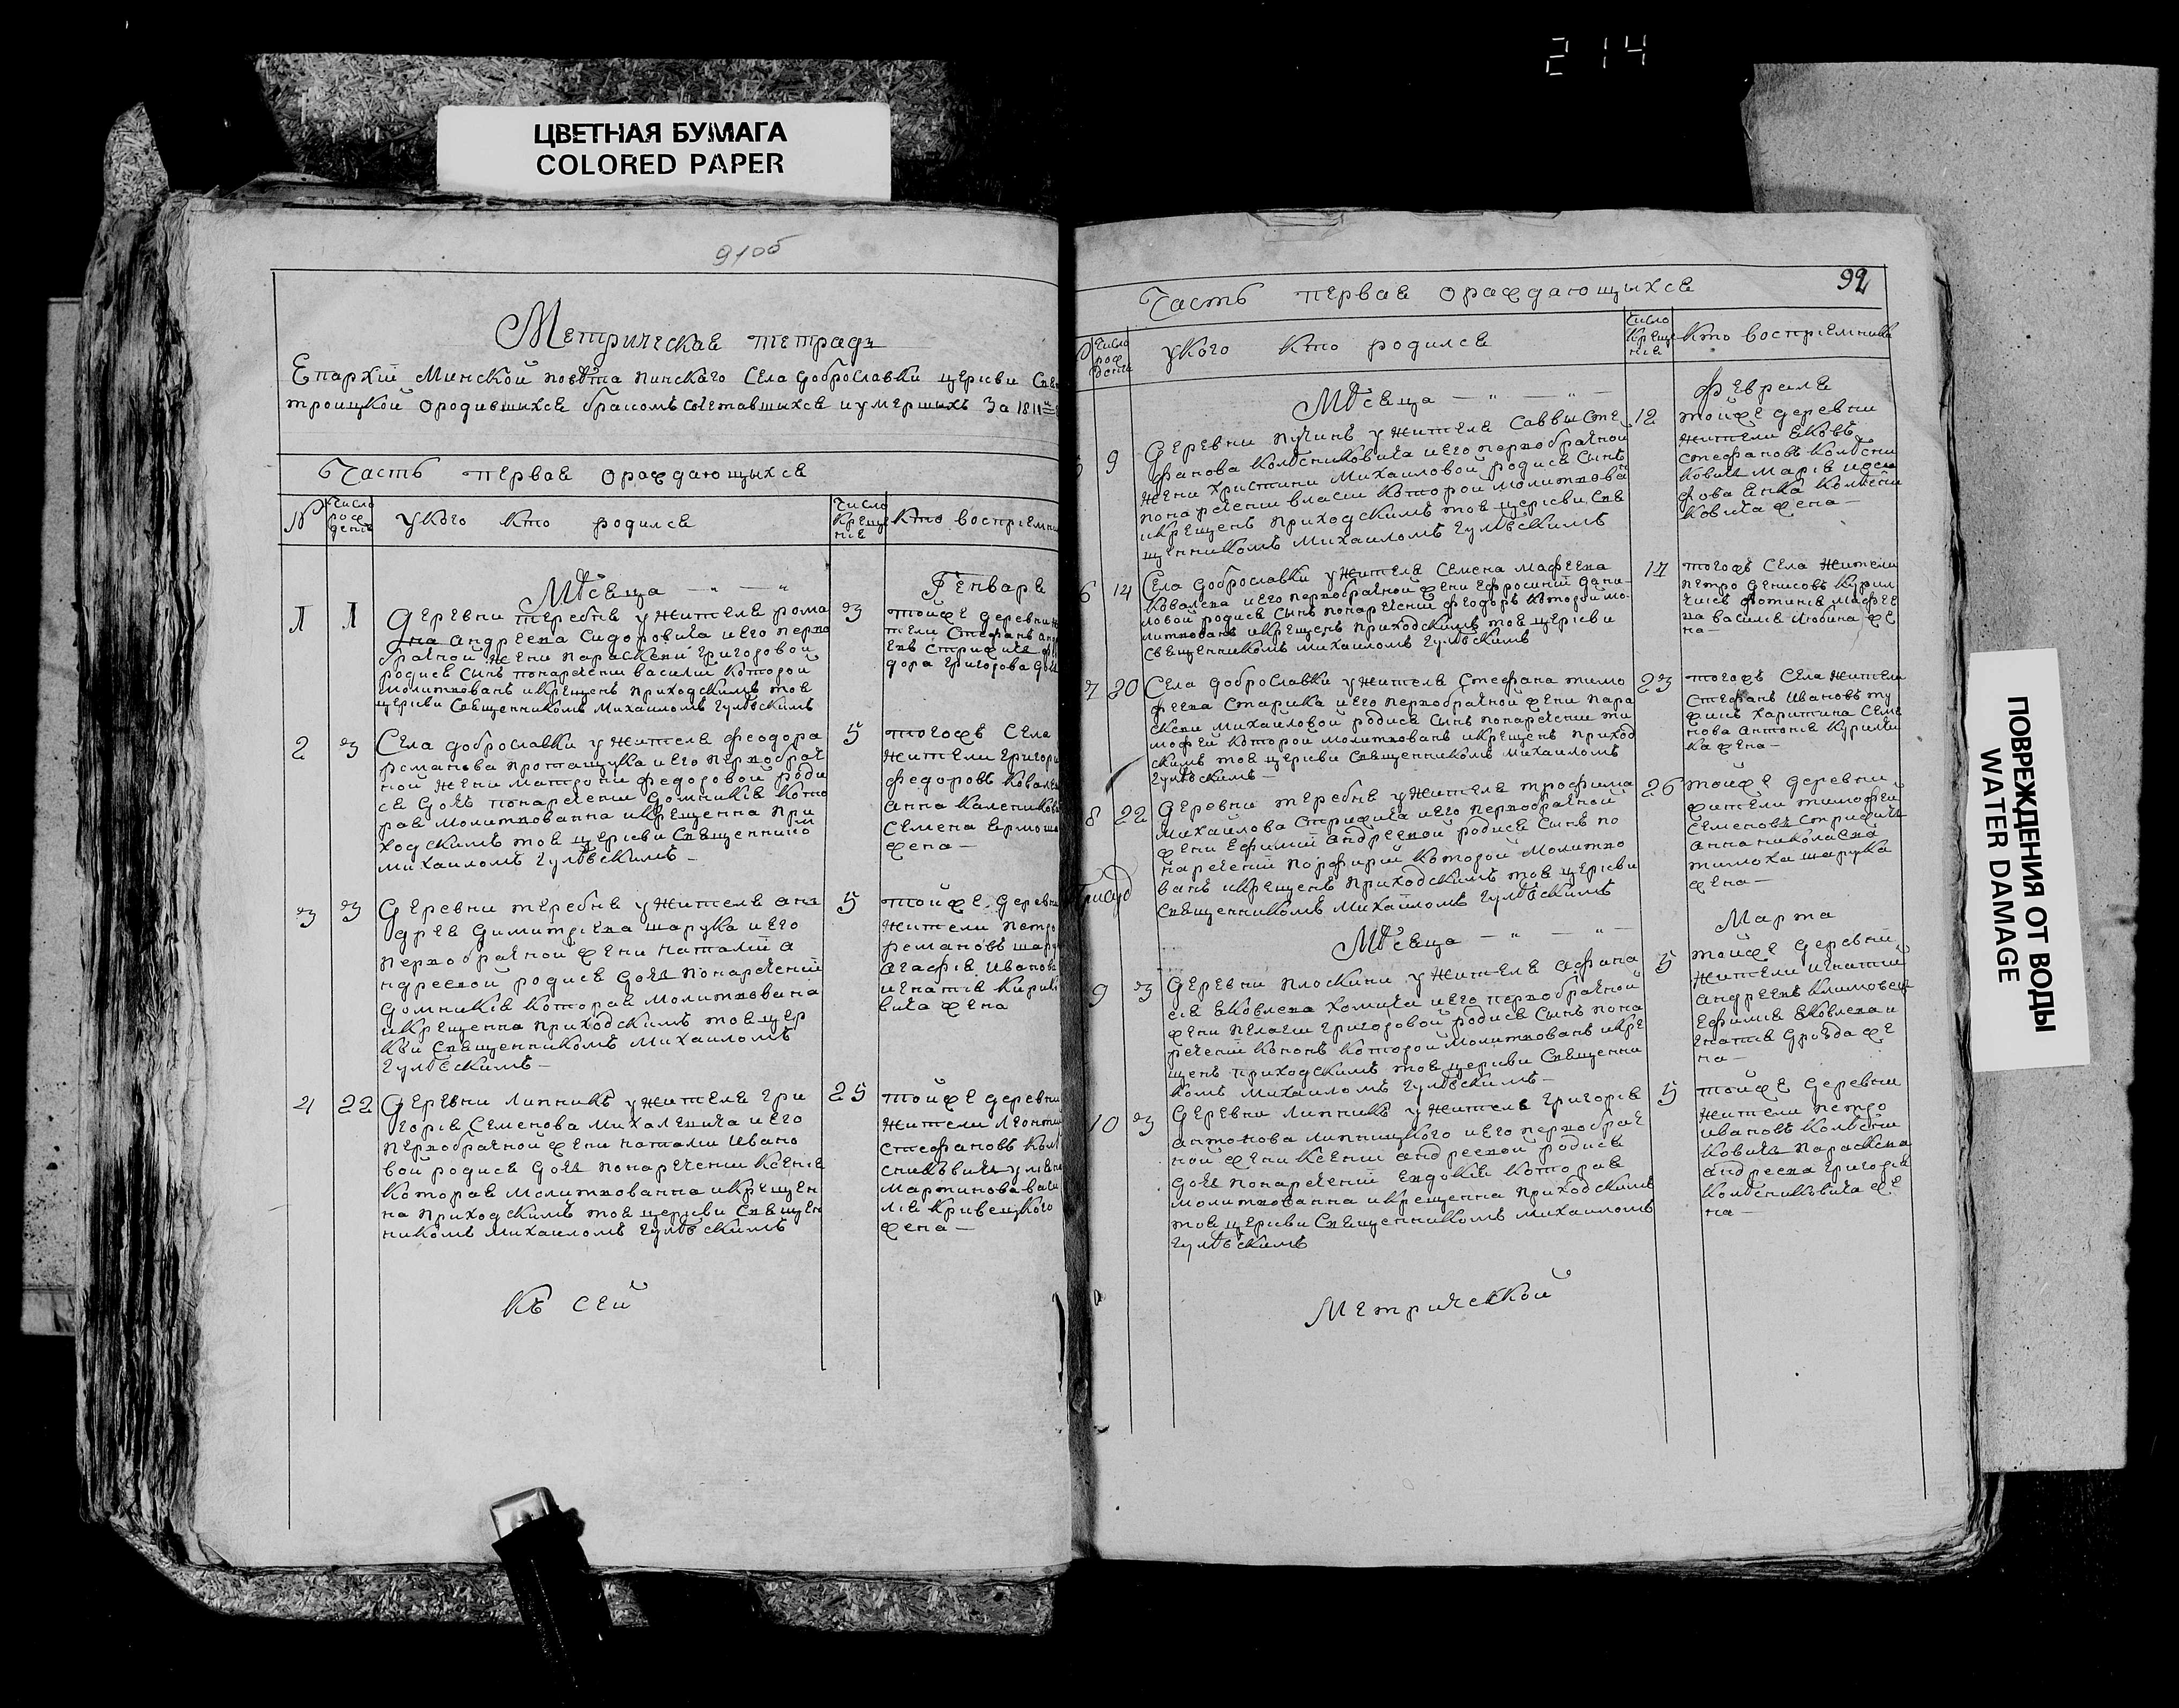 214
ЦВЕТНАЯ БУМАГА
COLORED PAPER
91об
Метрическая тетрадь
Епархіи Минской повѣта Пинскаго Села Доброславки церкви
троицкой ородившихся бракомъ сочетавшихся и умершихъ За 1811
Часть первая ораждающыхся
№
Число рож денія
Укого кто родился
Число Креще нія
Кто
Мѣсяца
Генваря
1
1
3
Деревни теребня ужителя рома
на андреева Сидоровича иего перво
брачной жени параскеви григоровой
родися Сынъ понаречени василій которой
молитвованъ икрещенъ приходскимъ тоя
церкви Священникомъ михаиломъ гулѣвскимъ
тойже деревни
тели Стефанъ
дора григорова
2
3
5
Села доброславки ужителя феодора
романова протащука иего первобрач
ной жени матрони федоровой роди
ся дочь понаречени домникія кото
рая молитвованна икрещенна при
ходскимъ тоя церкви Священнико
михаиломъ гулѣвскимъ
тогожъ Села
жители
федоровъ
анна
Семена
жена
3
3
5
Деревни теребня ужителя ан
дрея димитріева шарука иего
первобрачной жени наталіи а
ндреевой родися дочь понаречени
домникія которая молитвована
икрещенна приходскимъ тоя цер
кви Священникомъ михаиломъ
гулѣвскимъ
тойже деревни
жители петро
романовъ
агафія иванова
игнатія
вича жена
4
22
25
Деревни липникъ ужителя гри
горія Семенова михалевича иего
первобрачной жени наталіи ивано
вой родися дочь понаречени ксенія
которая молитвованна икрещен
на приходскимъ тоя церкви Священ
никомъ михаиломъ гулѣвскимъ
тойже деревни
жители леонтій
стефановъ
мартинова
лія кривецкого
жена
Къ сей
92
Часть первая ораждающыхся
Число рож денія
Укого Кто родился
Число Креще нія
Кто восприемники
Мѣсяца
Февраля
9
12
Деревни пучинъ ужителя Саввы Сте
фанова колѣсниковича иего первобрачной
жени христини михаиловой родися Сынъ
понаречени власій которой молитвова
икрещенъ приходскимъ тоя церкви Свя
щенникомъ михаиломъ гулѣвскимъ
тойже деревни
жители яковъ
стефановъ
ковичь марія
жена
6
14
17
Села доброславки ужителя Семена мафеева
ковалева иего первобрачной жени ефросиніи дани
ловой родися Сынъ понаречени феодоръ которой мо
литвованъ икрещенъ приходскимъ тоя церкви
священникомъ михаиломъ гулѣвскимъ
тогожъ Села жители
петро денисовъ
фотинія мафее
ва василія
на
7
20
23
Села доброславки ужителя Стефана тимо
феева Старика иего первобрачной жени пара
скеви михаиловой родися Сынъ понаречени ти
мофей которой молитвованъ икрещенъ приход
скимъ тоя церкви Священникомъ михаиломъ
гулѣвскимъ
тогожъ Села жители
Стефанъ ивановъ
харитина Семе
нова антонія
ка жена
8
22
26
Деревни теребня ужителя трофима
михайлова Стрижича иего первобрачной
жени ефиміи андреевой родися Сынъ по
наречени порфирій которой молитво
ванъ икрещенъ приходскимъ тоя церкви
Священникомъ михаиломъ гулѣвскимъ
тойже деревни
жители тимофей
семеновъ Стрижичь
анна николаева
тимоха шарука
жена
Мѣсяца
Марта
9
3
5
Деревни плоскини ужителя афана
сія яковлева хомича иего первобрачной
жени пелагеи григоровой родися Сынъ пона
речени кононъ которой молитвованъ икре
щенъ приходскимъ тоя церкви Священни
комъ михаиломъ гулѣвскимъ
тойже деревни
жители игнатій
андреевъ
ефимія яковлева и
гнатія дрозда же
на
10
3
5
Деревни липникъ ужителя григорія
антонова липницкого иего первобрач
ной жени ксеніи андреевой родися
дочь понаречени евдокія которая
молитвованна икрещенна приходскимъ
тоя церкви Священникомъ михаиломъ
гулѣвскимъ
тойже деревни
жители петро
ивановъ колѣсни
ковичь параскева
андреева григорія
колѣсниковича же
на
Метрической
ПОВРЕЖДЕНИЯ ОТ ВОДЫ
WATER DAMAGE